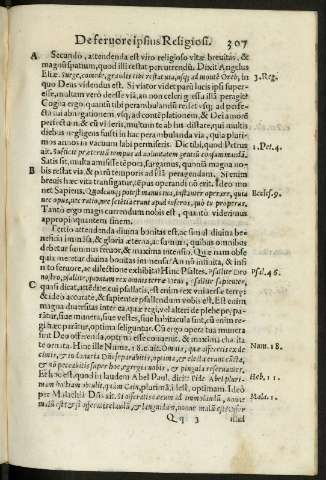 De feruore ipsius Religiosi. 307
A Secundo, attendenda est viro religioso vitæ breuitas, &
magnū spatium, quod illi restat percurrendū. Dixit Angelus
Eliæ. Surge, comede, grandis tibi restat via, vsq; ad montē Oreb, in
3. Reg.
quo Deus videndus est. Si viator videt parū lucis ipsi super-
esse, multam verò deesse viæ, an non celeri gressu illā peragit?
Cogita ergo, quantū tibi perambulandū restet vsq; ad perfe-
ctā tui abnegationem, vsq; ad contēptationem, & Dei amorē
perfectū: an nō, & cū videris, multum te abhinc distare, qui multis
diebus negligens fuisti in hac perambulanda via, quia pluri-
mos annos in vacuum labi permiseris. Dic tibi, quod Petrus
1. Pet. 4.
ait. Sufficit præteritū tempus ad voluntatem gentis consummandā.
Satis sit, multa amisisse tēpora, fargamus, quoniā magna no-
B bis restat via, & parū temporis ad illā peragendam. Si enim
breuis hæc vita transfigatur, tēpus operandi nō erit. Ideo mo-
net Sapiens. Quodcunq; potest manus tua, instanter operare, quia
Eccles. 9.
nec opus, nec ratio, nec scientia erunt apud inferos, quò tu properas.
Tanto ergo magis currendum nobis est, quantò viderimus
appropinquantem finem.
Tertio attendenda diuina bonitas est, ac simul diuina be-
neficia immēsa, & gloria æterna, ac summa; quibus omnibus
debetur summus feruor, & maxima intensio. Quæ nam obse
quia meretur diuina bonitas immensa? An nō infinita, & infi-
nito feruore, ac dilectione exhibita? Hinc Psaltes. psallite Deo
nostro, psallite, quoniam rex omnis terræ Deus, psallite sapienter,
Psal. 46.
C quasi dicat, attēdite cui psallatis, est enim rex vniuersæ terræ;
& ideo accurate, & sapienter psallendum vobis est. Est enim
magna diuersitas inter ea, quæ regi, vel alteri de plebe præpa-
rātur, siue munera, siue vestes, siue habitacula sint, cū enim re-
gi hæc parātur, optima seliguntur. Cū ergo opera tua munera
sint Deo offerenda, optima esse conuenit, & maxima cha-
te ornata. Hinc ille Nume. 18. ait. Omnia, quæ offeretis ex de
Num. 18.
cimis, & in donaria Dñi separabitis, optima, & electa erunt cūcta,
& nō peccabitis super hoc, egregia vobis, & pinguia reseruantes.
Et hoc est, quod in laudem Abel Paul. dicit: Fide Abel pluri-
Heb. 11.
mam hostiam obtulit, quàm Cain, plurimā, idest, optimam. Ideò
per Malachiā Dñs ait. Si offeratis cæcum ad immolandū, nonne
Mala. 1.
malū est? & si offeratis claudū, & languidum, nonne malū est? offer
Q q 3 illud